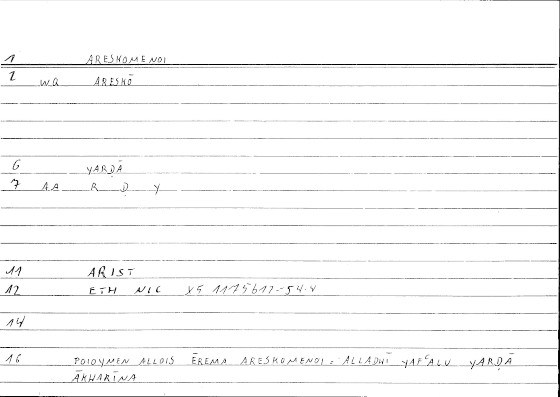 1 ARESKOMENOI
2 WQ ARESKŌ
6 YARḌĀ
7 AA R Ḍ Y
11 ARIST
12 ETH NIC
14
16 POIOYMEN ALLOIS ĒREMA ARESKOMENOI = ALLADHĪ YAFʿALU YARḌĀ
ĀKHARĪNA